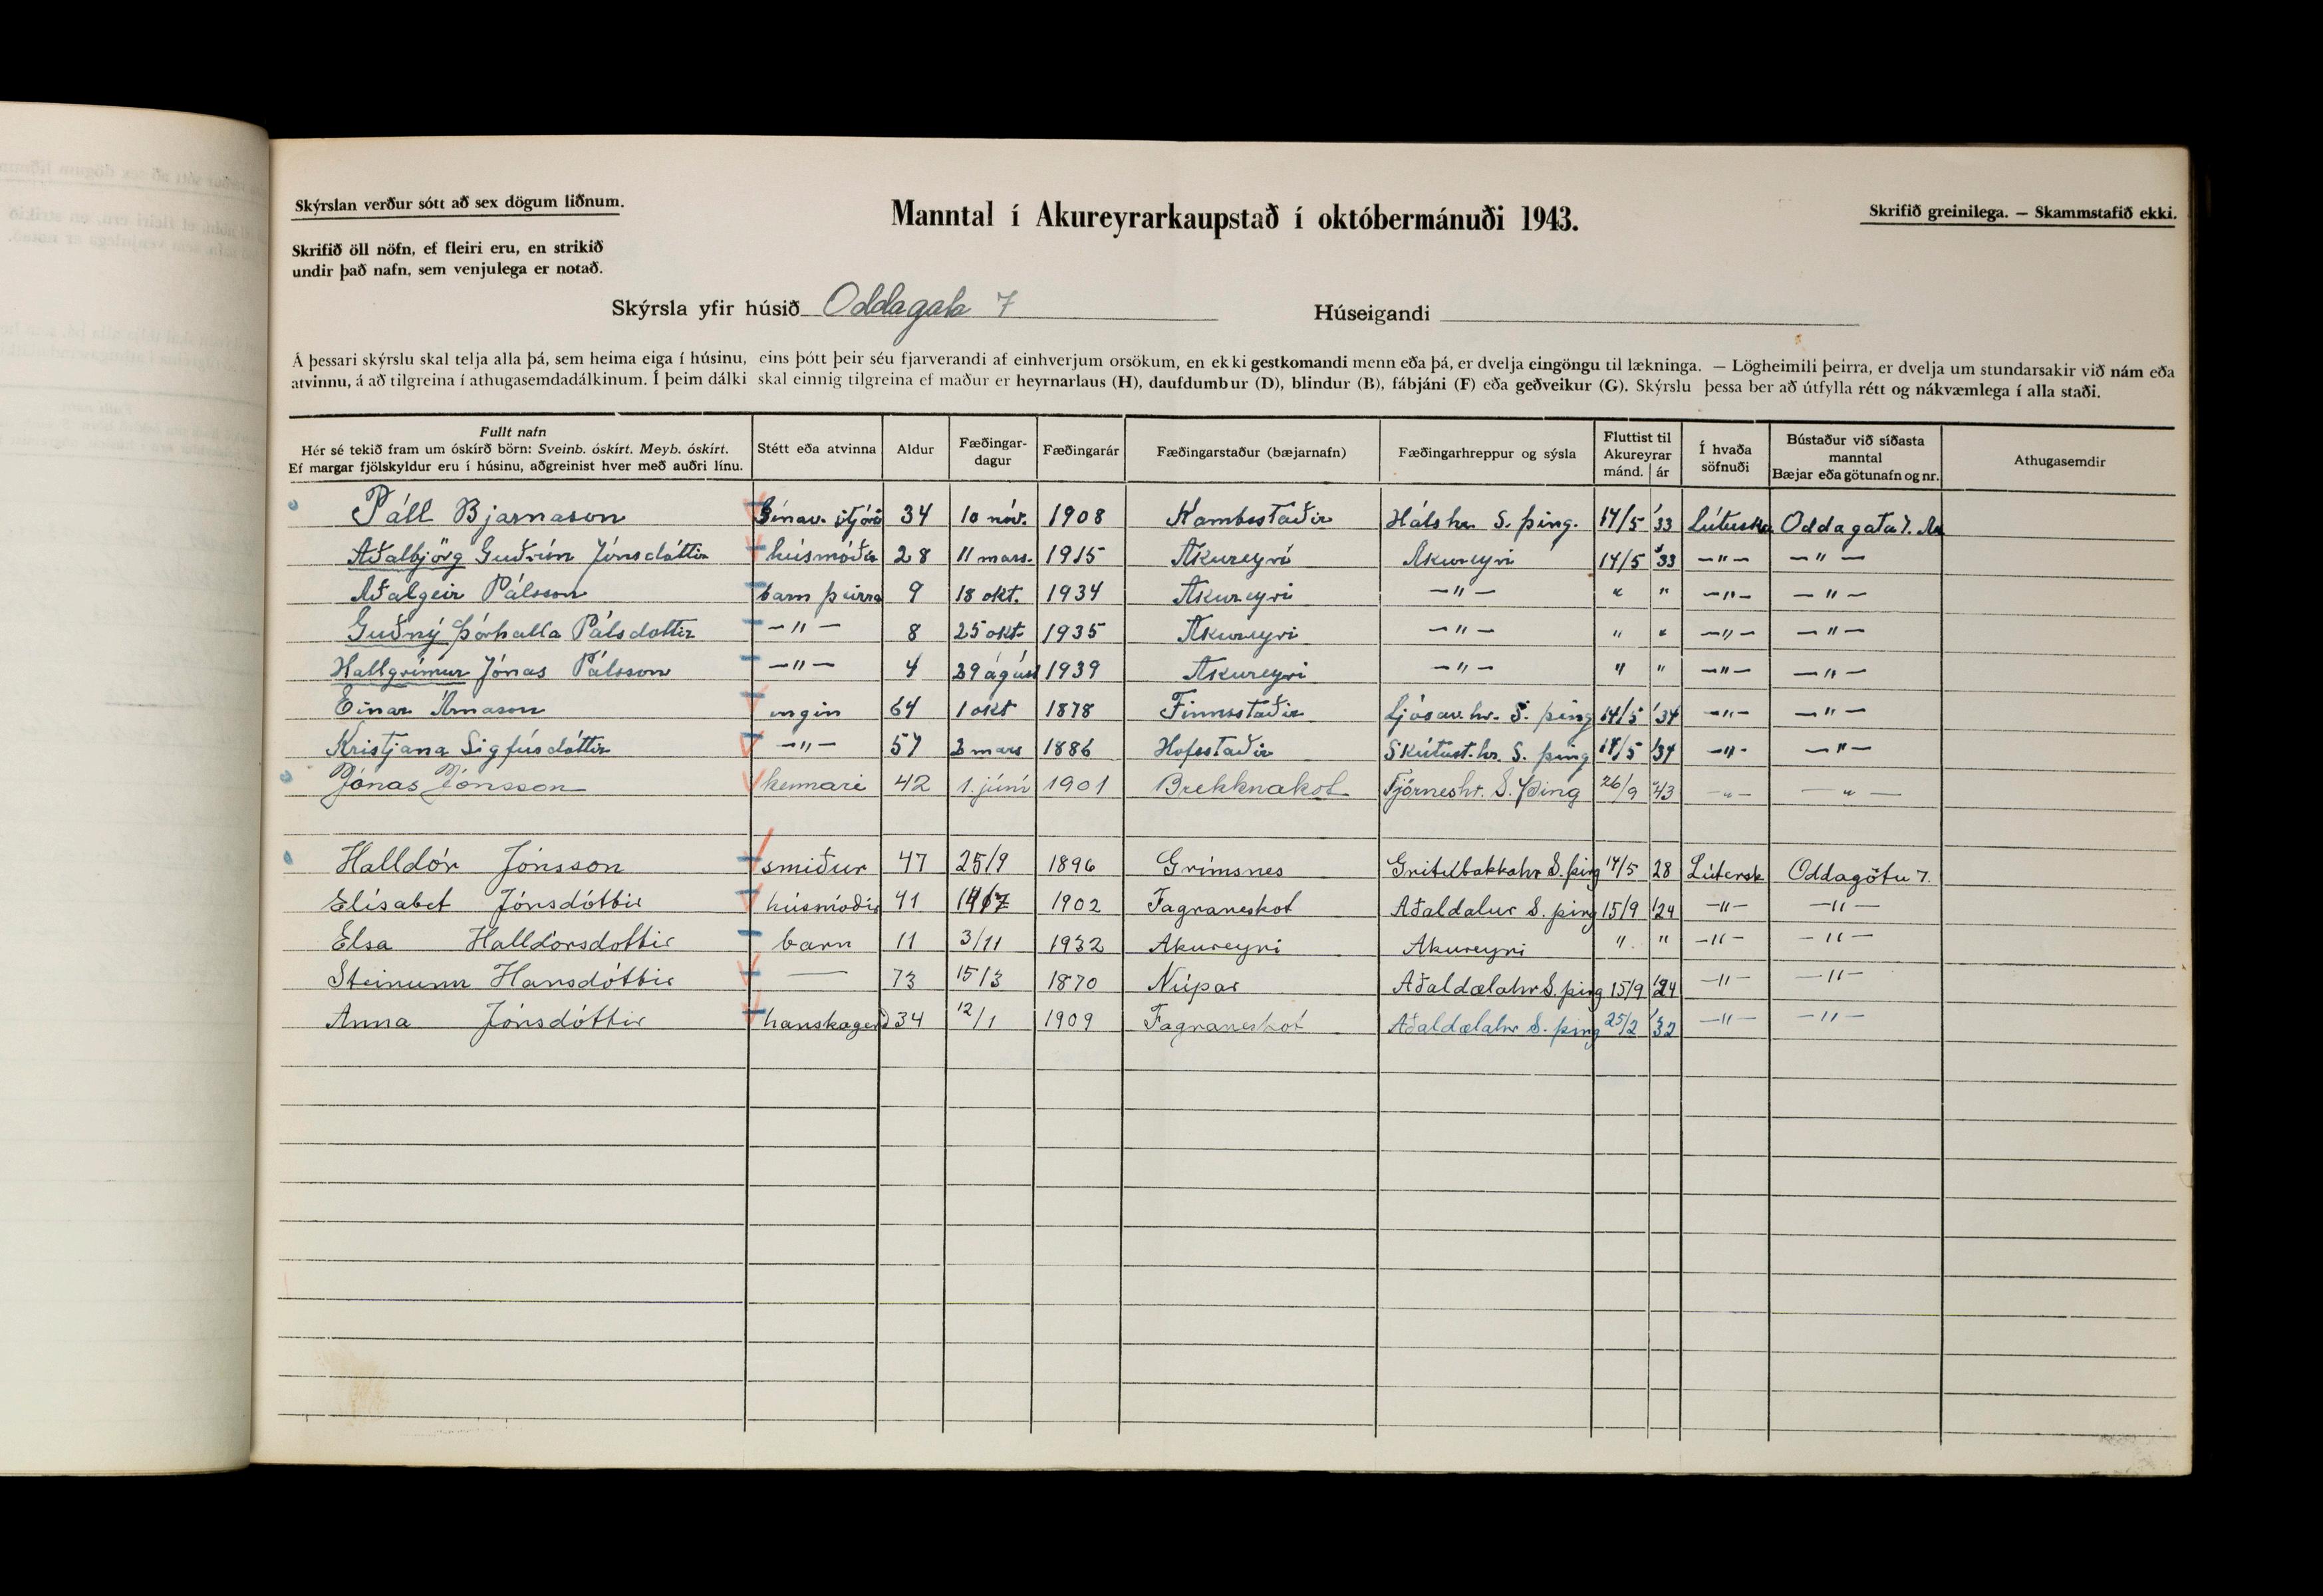 Skýrslan verður sótt að sex dögum liðnum.
Manntal í Akureyrarkaupstað í októbermánuði 1943.
Skrifið greinilega. — Skammstafið ekki.
Skrifið öll nöfn, ef fleiri eru, en strikið
undir það nafn, sem venjulega er notað.
Skýrsla yfir húsið Oddagata 7 Húseigandi
Á þessari skýrslu skal telja alla þá, sem heima eiga í húsinu, eins þótt þeir séu fjarverandi af einhverjum orsökum, en ekki gestkomandi menn eða þá, er dvelja eingöngu til lækninga. — Lögheimili þeirra, er dvelja um stundarsakir við nám eða
atvinnu, á að tilgreina í athugasemdadálkinum. Í þeim dálki skal einnig tilgreina ef maður er heyrnarlaus (H), daufdumbur (D), blindur (B), fábjáni (F) eða geðveikur (G). Skýrslu þessa ber að útfylla rétt og nákvæmlega í alla staði.
Fullt nafn
Hér sé tekið fram um óskírð börn: Sveinb. óskírt. Meyb. óskírt.
Ef margar fjölskyldur eru í húsinu, aðgreinist hver með auðri línu.
Stétt eða atvinna
Aldur
Fæðingar-
dagur
Fæðingarár
Fæðingarstaður (bæjarnafn)
Fæðingarhreppur og sýsla
Fluttist til
Akureyrar
mánd. ár
Í hvaða
söfnuði
Bústaður við síðasta
manntal
Bæjar eða götunafn og nr.
Athugasemdir
Páll Bjarnason 34 10 nóv. 1908 Kambsstaðir Háls hr. S. þing. 14/5 '33 Oddagata 7.
Aðalbjörg Guðrún Jónsdóttir húsmóðir 28 11 mars. 1915 Akureyri Akureyri 14/5 '33 —"— —"—
Aðalgeir Pálsson barn þeirra 9 18 okt. 1934 Akureyri —"— " " —"— —"—
Guðný Þórhalla Pálsdóttir —"— 8 25 okt. 1935 Akureyri —"— " " —"— —"—
Hallgrímur Jónas Pálsson —"— 4 29 ágúst 1939 Akureyri —"— " " —"— —"—
Einar Árnason engin 64 1 okt 1878 Finnsstaðir Ljósav. hr. S. þing 14/5 '34 —"— —"—
Kristjana Sigfúsdóttir —"— 57 3 mars 1886 Hofsstaðir Skútust. hr. S. þing 14/5 '34 —"— —"—
Jónas Jónsson kennari 42 1. júní 1901 Brekknakot Tjörneshr. S. Þing 26/9 '43 —"— —"—
Halldór Jónsson smiður 47 25/9 1896 Grímsnes S. þing 14/5 28 Lútersk Oddagötu 7.
Elísabet Jónsdóttir húsmóðir 41 1902 Fagraneskot Aðaldalur S. þing 15/9 '24 —"— —"—
Elsa Halldórsdóttir barn 11 3/11 1932 Akureyri Akureyri " " —"— —"—
Steinunn Hansdóttir — 73 15/3 1870 Núpar Aðaldælahr S. þing 15/9 '24 —"— —"—
Anna Jónsdóttir hanskagerð 34 12/1 1909 Fagraneskot Aðaldælahr S. þing 25/2 '32 —"— —"—